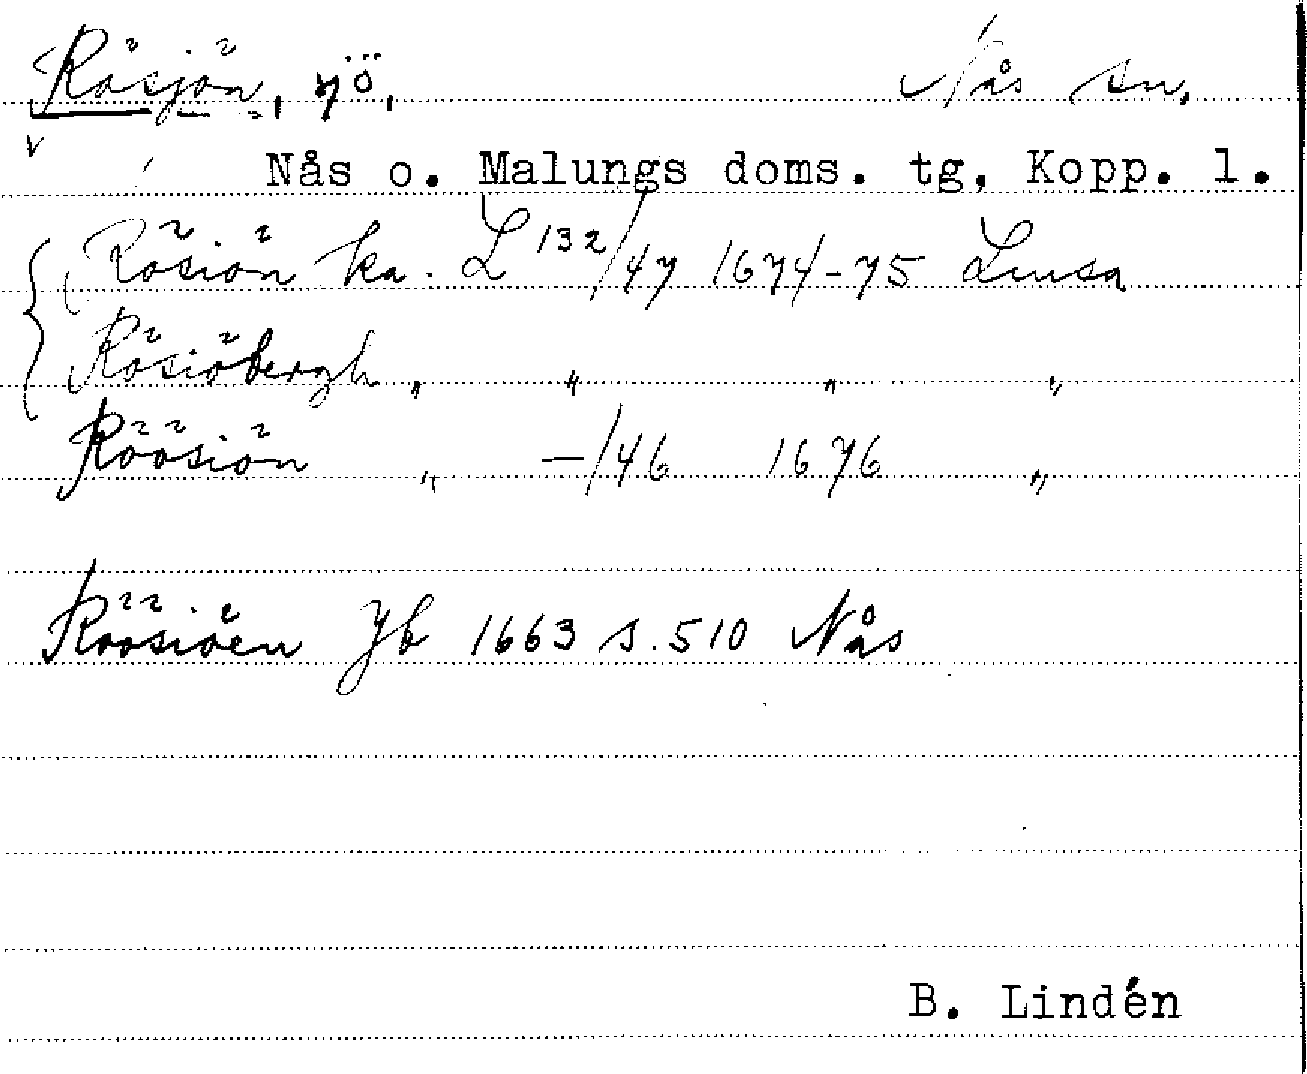 Rösjön, sjö.    Nås sn.
Nås o. Malungs doms. tg, Kopp. l.
Rösiön ka. L 132/47 1674-75 Limsa
Rösiöbergh " " " "
Röösiön " —/46 1676 "
Röösiöen Jb 1663 s. 510 Nås
B. Lindén